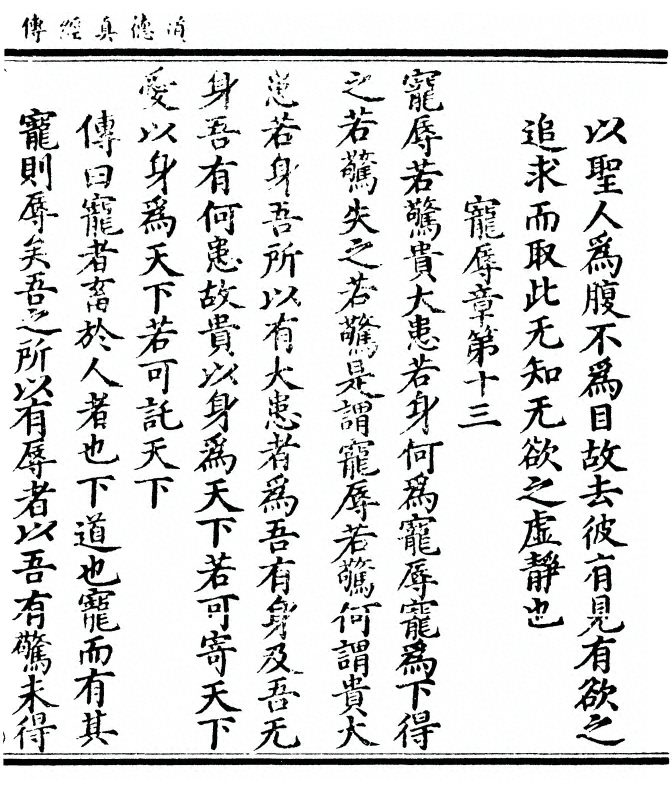 道德真經傳
以聖人爲腹不爲目故去彼有見有欲之
追求而取此无知无欲之虛靜也
寵辱章第十三
寵辱若驚貴大患若身何爲寵辱寵爲下得
之若驚失之若驚是謂寵辱若驚何謂貴大
患若身吾所以有大患者爲吾有身及吾无
身吾有何患故貴以身爲天下若可寄天下
愛以身爲天下若可託天下
傳曰寵者畜於人者也下道也寵而有其
寵則辱矣吾之所以有辱者以吾有驚未得